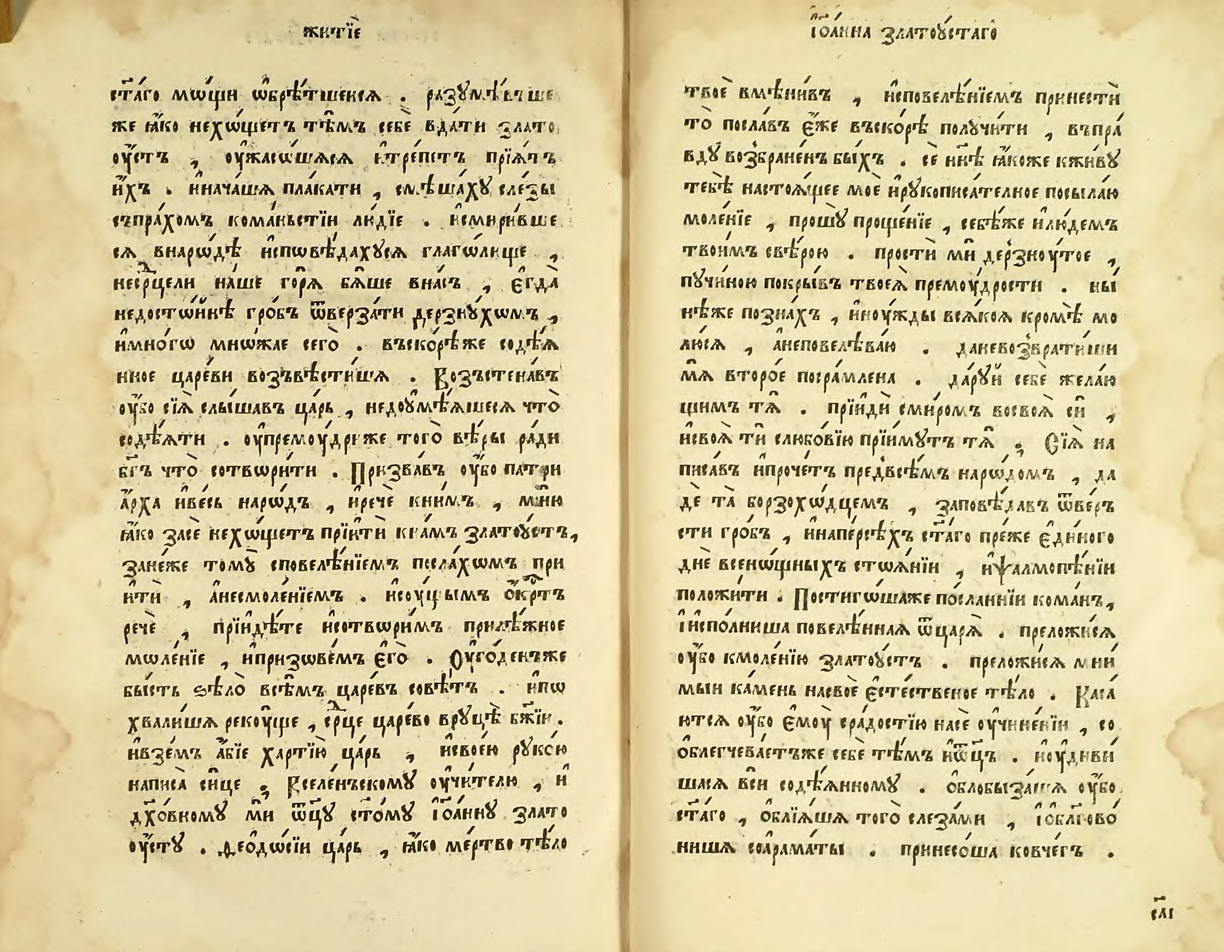 житїѐ
ст҃а́го мѡ́щи ѡ҆брѣ́тшенсѧ . разꙋмѣ́вше
же ꙗ҆́ко нехѡ́щетъ тѣ́мъ себѐ вда́ти злато
ᲂу҆́стъ , ᲂу҆жасѡ́шѧсѧ и҆тре́петъ прїѧ́тъ
и҆̀хъ . и҆нача́шѧ пла́кати , смѣ́шахꙋ сле́зы
съпра́хомъ кома́ньстїи лю́дїе . и҆смири́вше
сѧ внарѡ́дѣ и҆сповѣ́дахꙋсѧ глаго́люще ,
несрⷣцели на́ше го́рѧ бѧ́ше вна́съ , є҆гда̀
недосто́йнѣ гро́бъ ѿверза́ти дерзнꙋ́хѡмъ ,
и҆мно́гѡ мнѡ́жае сего̀ . въско́рѣже содѣ́ѧ
нное царе́ви возъвѣсти́шѧ . Возъстена́въ
ᲂу҆̀бо сїѧ̀ слы́шавъ ца́рь , недоꙋмѣ́ѧшесѧ что̀
содѣ́ѧти . ᲂу҆премᲂу́дриже того̀ вѣ́ры ра́ди
бг҃ъ что̀ сотвори́ти . Призва́въ ᲂу҆̀бо патри
а҆́рха и҆ве́сь нарѡ́дъ , и҆речѐ кни́мъ , мню̀
ꙗ҆́ко засѐ нехѡ́щетъ прїитѝ кна́мъ златоꙋ́стъ,
зане́же томꙋ̀ сповелѣ́нїемъ посла́хомъ при
ити́ , а҆несмоле́нїемъ . и҆сꙋ́щымъ ѻ҆́крⷭтъ
речѐ , прїиди́те и҆сотвори́мъ приле́жное
мѡле́нїе , и҆призове́мъ є҆го̀ . Оу҆го́денъже
бы́сть ѕѣло̀ всѣ́мъ царе́въ совѣ́тъ . и҆по
хвали́шѧ рекᲂу́ще , срⷣце царе́во врꙋцѣ̀ бж҃їи .
и҆взе́мъ а҆́бїе ха́ртїю ца́рь , и҆свое́ю рꙋко́ю
написа̀ си́це . Вселе́нъскомꙋ ᲂу҆чи́телю , и҆
дх҃о́вномꙋ мѝ ѿц҃ꙋ̀ ст҃о́мꙋ і҆ѡа́ннꙋ злато
ᲂу҆́стꙋ . Ѳеодо́сїи ца́рь , ꙗ҆́ко ме́ртво тѣ́ло
і҆ѡа́нна златоꙋ́стаго
твоѐ вмѣни́въ , и҆сповелѣ́нїемъ принестѝ
то̀ посла́въ є҆́же въско́рѣ полꙋчи́ти , въпра́
вдꙋ возбране́нъ бы́хъ . сѐ нн҃ѣ ꙗ҆́коже кжи́вꙋ
тебѣ̀ настоѧ́щее моѐ и҆рꙋкописа́телное посыла́ю
моле́нїе , прошꙋ̀ проще́нїе , себѣ́же и҆лю́демъ
твои́мъ свѣ́рою . простѝ мѝ дерзнᲂу́тое ,
пꙋчи́ною покры́въ твоеѧ̀ премᲂу́дрости . ны́
нѣже позна́хъ , и҆нᲂу́жды всѧ́коѧ кромѣ̀ мо
лю́сѧ , а҆неповелѣва́ю . даневозврати́ши
мѧ̀ второ́е посра́млена . да́рꙋй себѐ жела́ю
щимъ тѧ̀ . прїидѝ сми́ромъ восвоѧ̀ сѝ ,
и҆своѧ̀ тѝ слюбо́вїю прїи́мꙋтъ тѧ̀ . Сїѧ̀ на
писа́въ и҆проче́тъ предвсѣ́мъ наро́домъ , да
дѐ та̀ борзохо́дцемъ , заповѣ́давъ ѿвер
сти гро́бъ , и҆напе́рсѣхъ ст҃а́го пре́же є҆ди́ного
днѐ всено́щныхъ стоѧ́нїи , и҆ѱалмопѣ́нїи
положи́ти . Постиго́шаже посла́ннїи кома́нъ,
і҆испо́лниша повелѣ́ннаѧ ѿцарѧ̀ . преложи́сѧ
ᲂу҆̀бо кмоле́нїю златоꙋ́стъ . преложи́сѧ мни
мыи ка́мень насвоѐ є҆сте́ственое тѣ́ло . Каса́
ютсѧ ᲂу҆̀бо є҆мᲂу̀ сра́достїю насѐ ᲂу҆чине́нїи , со
ѻ҆блегчева́етъже себѐ тѣ́мъ и҆ѿц҃ъ . и҆ᲂу҆диви́
шасѧ всѝ содѣ́ѧнномꙋ . ѻ҆блобыза́шѧ ᲂу҆̀бо
ст҃а́го , ѻ҆блїѧ́шѧ того̀ слеза́ми , і҆ѻ҆блгⷭово
ни́шѧ соарама́ты . принесо́ша ковче́гъ .
сл҃і